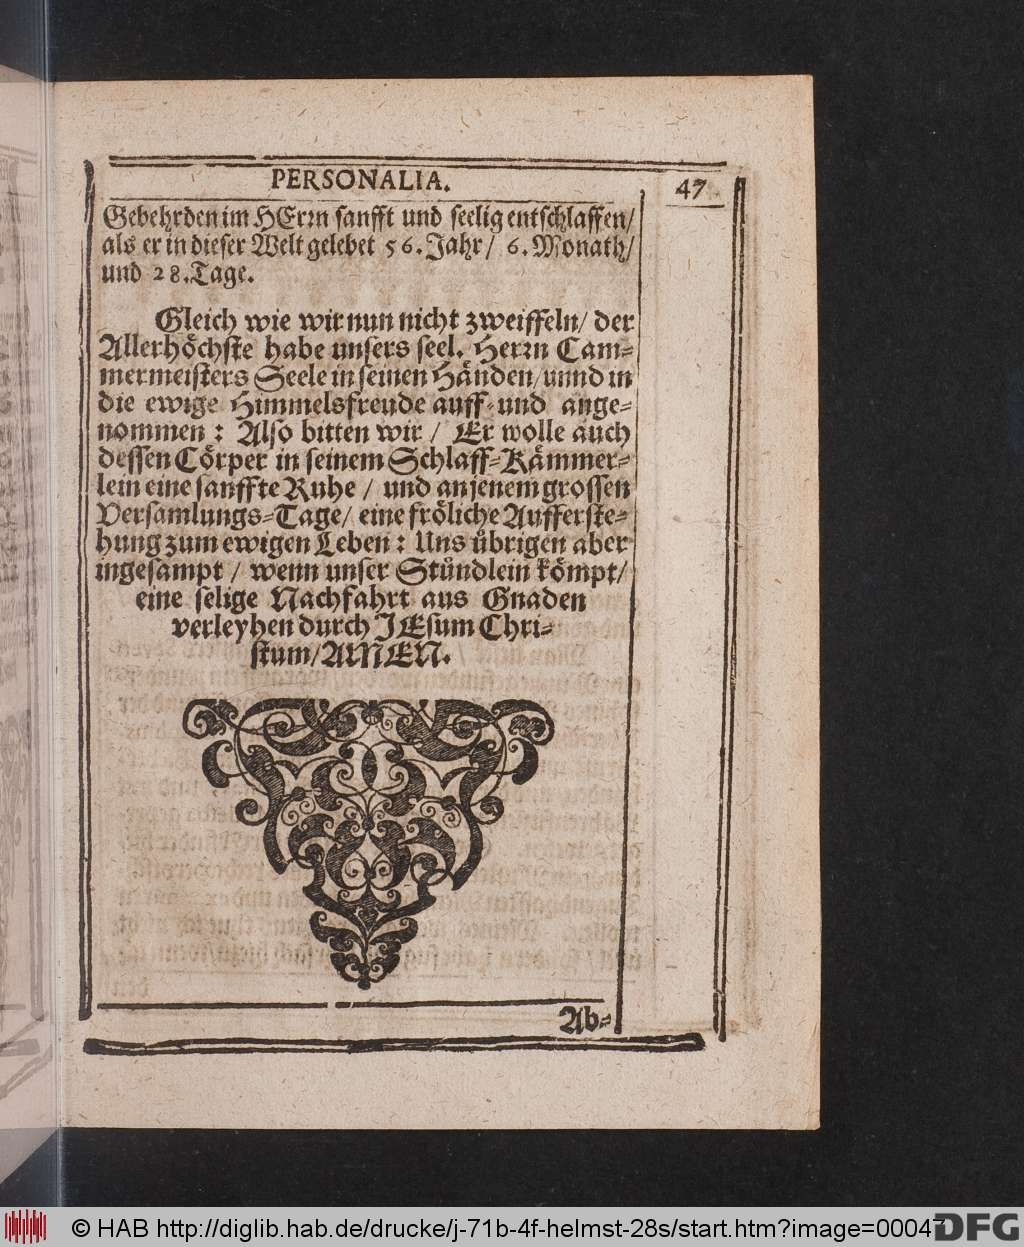 PERSONALIA.
47
Gebehrden im HErrn sanfft und seelig entschlaffen/
als er in dieser Welt gelebet 56. Jahr/ 6. Monath/
und 28. Tage.
Gleich wie wir nun nicht zweiffeln/ der
Allerhöchste habe unsers seel. Herrn Cam-
mermeisters Seele in seinen Händen/ unnd in
die ewige Himmelsfreude auff- und ange-
nommen: Also bitten wir / Er wolle auch
dessen Cörper in seinem Schlaff-Kämmer-
lein eine sanffte Ruhe / und an jenem grossen
Versamlungs-Tage/ eine fröliche Aufferste-
hung zum ewigen Leben: Uns übrigen aber
ingesampt / wenn unser Stündlein kömpt/
eine selige Nachfahrt aus Gnaden
verleyhen durch JEsum Chri-
stum/ AMEN.
Ab-
© HAB http://diglib.hab.de/drucke/j-71b-4f-helmst-28s/start.htm?image=00047
DFG